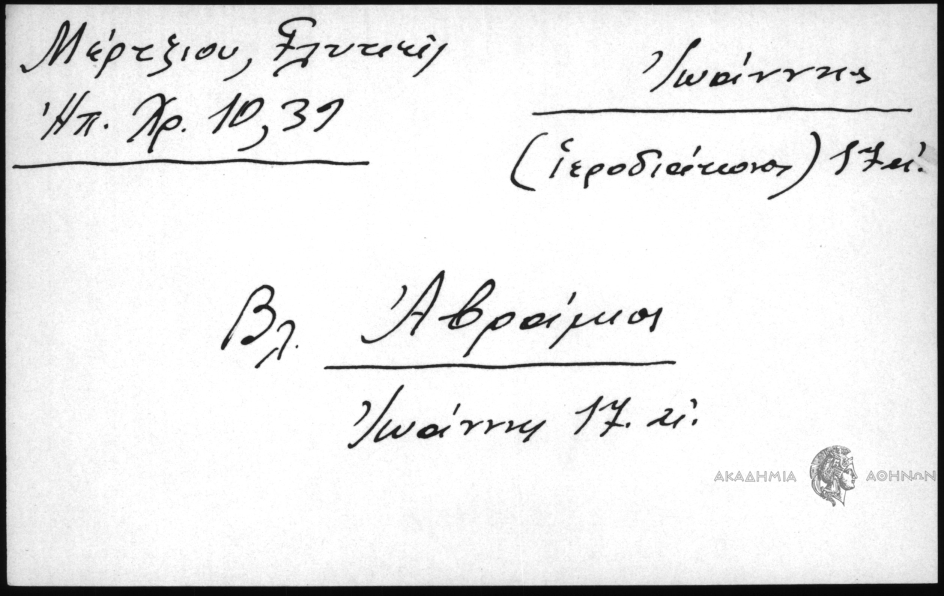 Μέρτζιου, Γλυκεῖς
Ἠπ. Χρ. 10, 39
Ἰωάννης
(ἱεροδιάκονος) 17 αἰ.
Βλ. Ἀβράμιος
Ἰωάννης 17. αἰ.
ΑΚΑΔΗΜΙΑ ΑΘΗΝΩΝ